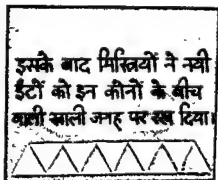 इसके बाद मिस्त्रियों ने नयी
ईंटों को इन कीनों के बीच
वाली खाली जगह पर रख दिया।